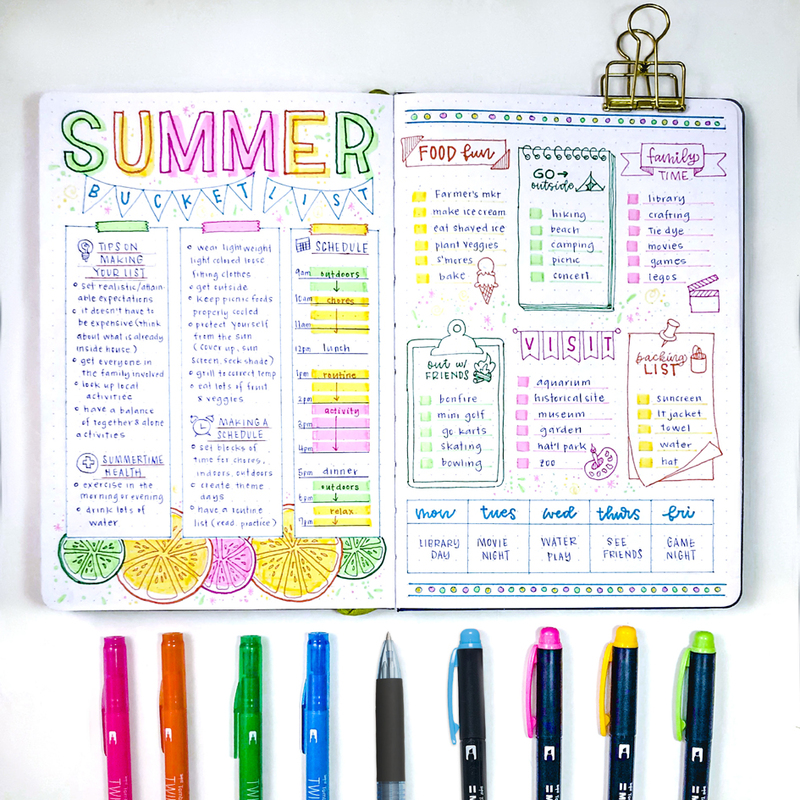 SUMMER
BUCKET LIST
TIPS ON
MAKING
YOUR LIST
set realistic/attain-
able expectations
it doesn't have to
be expensive (think
about what is already
inside house)
get everyone in
the family involved
look up local
activities
have a balance
of together & alone
activities
SUMMERTIME
HEALTH
exercise in the
morning or evening
drink lots of
water
wear lightweight
light colored loose
fitting clothes
get outside
keep picnic foods
properly cooled
protect yourself
from the sun
(cover up, sun
screen, seek shade)
grill to correct temp
eat lots of fruit
& veggies
MAKING A
SCHEDULE
set blocks of
time for chores,
indoors, outdoors
create theme
days
have a routine
list (read, practice)
SCHEDULE
9am outdoors
10am chores
11am
12pm lunch
1pm routine
2pm
activity
3pm
4pm
5pm dinner
outdoors
6pm
relax
7pm
FOOD fun
Farmer's mkt
make ice cream
eat shaved ice
plant veggies
s'mores
bake
GO →
outside
hiking
beach
camping
picnic
concert
family
TIME
library
crafting
Tie dye
movies
games
legos
out w/
FRIENDS
bonfire
mini golf
go karts
skating
bowling
VISIT
aquarium
historical site
museum
garden
nat'l park
zoo
packing
LIST
suncreen
lt jacket
towel
water
hat
mon tues wed thurs fri
LIBRARY MOVIE WATER SEE GAME
DAY NIGHT PLAY FRIENDS NIGHT